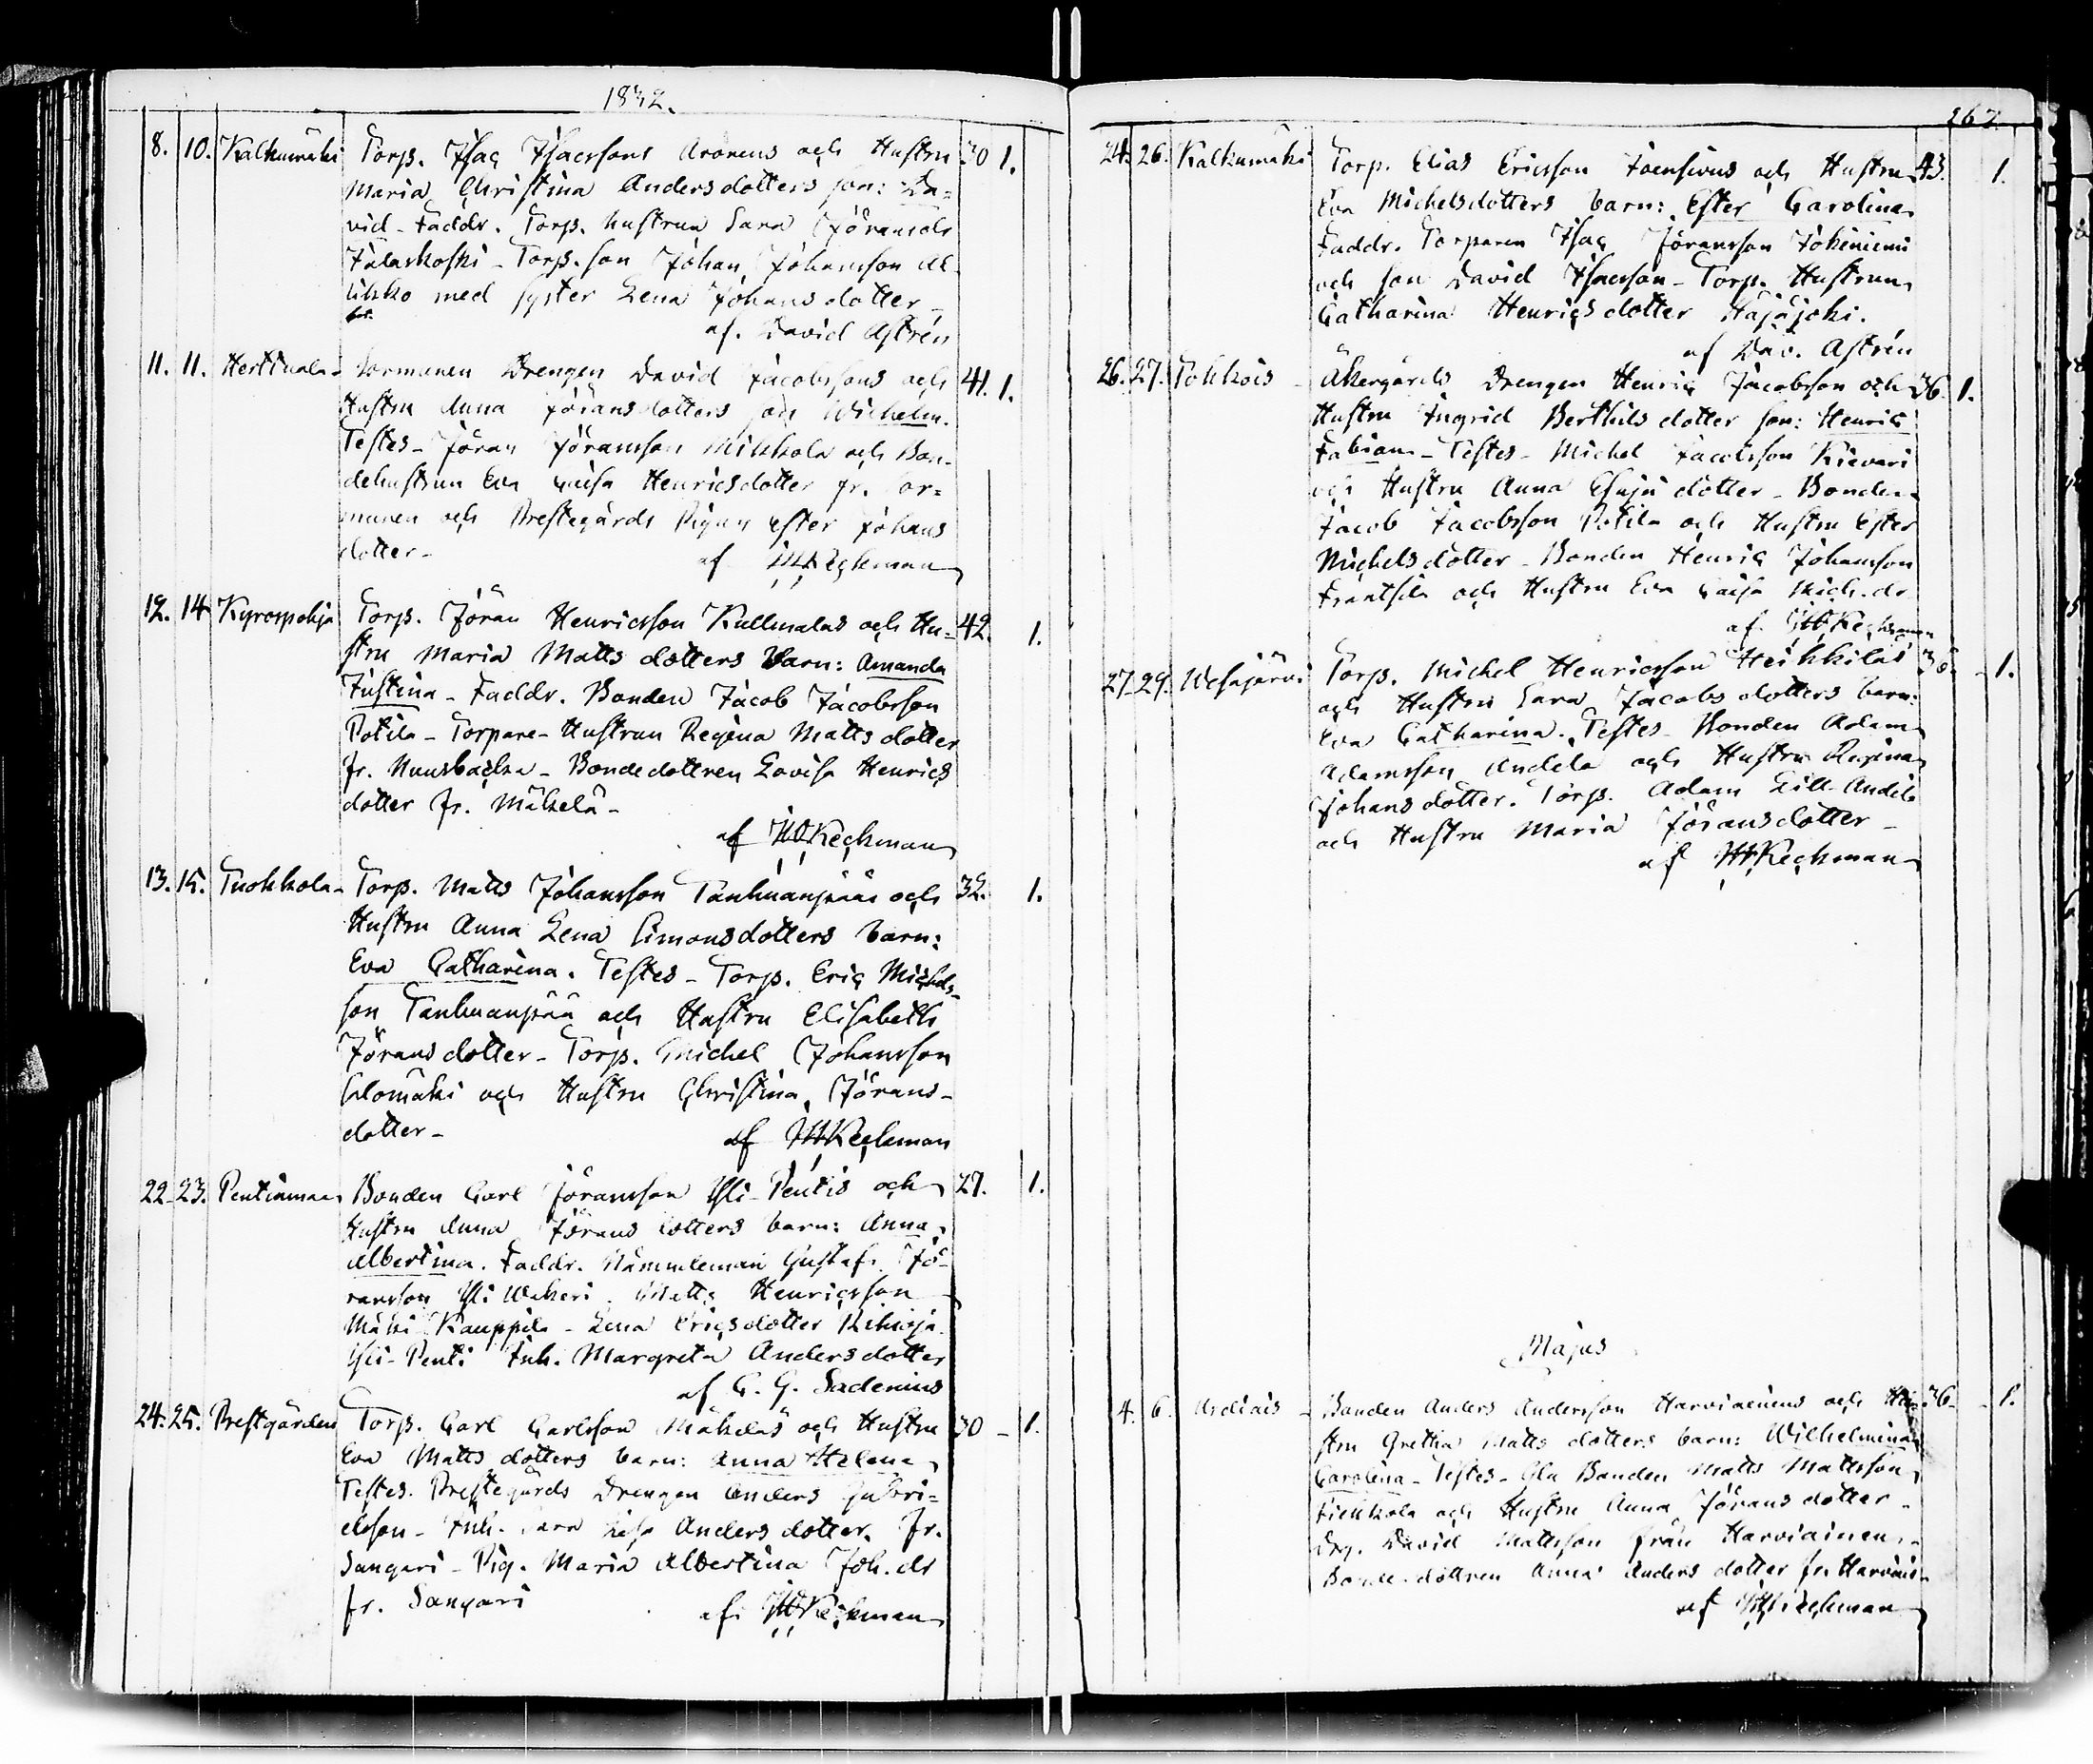 1832.
8. 10. Kalkumäki Torp. Isac Isacssons Aronens och Hustru 30 1.
Maria Christina Andersdotters son: Da=
vid - Faddr. Torp. hustrun Sara Jöransdr
Jalaskoski - Torp. son Johan Johansson Al-
likko med syster Lena Johansdotter -
af. David Astrén
11. 11. Herttuala - Sormunen Drengen David Jacobssons och 41. 1.
Hustru Anna Jöransdotters son Wilhelm.
Testes - Jöran Jöransson Mikkola och Bon-
dehustrun Eva Caisa Henricsdotter fr. Sor=
munen och Prestegårds Pigan Ester Johans
dotter - af HKeckman
12. 14 Kyrospohja Torp. Jöran Henricsson Kullmalas och Hu= 42. 1.
stru Maria Matts dotters Barn: Amanda
Justina - Faddr. Bonden Jacob Jacobsson
Potila - Torpare-Hustrun Regina Matts dotter
fr. Nuusbacka - Bondedottren Lovisa Henrics
dotter fr. Mäkelä -
af HKeckman
13. 15. Tuokkola - Torp. Matts Johansson Tanhuanpääs och 32. 1.
Hustru Anna Lena Simonsdotters barn:
Eva Catharina. Testes - Torp. Eric Michels-
son Tanhuanpää och Hustru Elisabeth
Jörans dotter - Torp. Michel Johansson
Salomäki och Hustru Christina Jörans-
dotter - af HKeckman
22. 23. Pentinmaa Bonden Carl Jöransson Yli-Pentis och 27. 1.
Hustru Anna Jörans dotters barn: Anna
Albertina. Faddr. Nämndeman Gustaf Jö-
ransson Yli Wakeri. Matts Henricsson
Mäki Kauppila - Lena Ericsdotter
Yli-Penti Inh. Margreta Andersdotter
af C. G. Sadenius
24. 25. Prestgården Torp. Carl Carlsson Mäkeläs och Hustru 30 - 1.
Eva Matts dotters barn: Anna Helena
Testes. Prestegårds Drengen Anders Gabri=
elsson - Inh. Sara Lisa Anders dotter. fr.
Sangari - Pig. Maria Albertina Joh. dr
fr. Sangari af HKeckman
267.
24. 26. Kalkumäki Torp. Elias Ericsson Joensivus och Hustru 43. 1.
Eva Michelsdotters barn: Ester Carolina
Faddr. Torparen Isac Jöransson Jokiniemi
och son David Isacsson - Torp. Hustrun
Catharina Henricsdotter Hajajoki.
af Dav. Astrén
26. 27. Tokkois - Åkergårds Drengen Henric Jacobsson och 36. 1.
Hustru Ingrid Berthils dotter son: Henric
Fabian - Testes - Michel Jacobsson Kievari
och Hustru Anna Esaju dotter - Bonden
Jacob Jacobsson Potila och Hustru Ester
Michelsdotter - Bonden Henric Johansson
Frantsila och Hustru Eva Caisa Mich. dr
af HKeckman
27. 29. Wesajärvi Torp. Michel Henricsson Heikkiläs - 1.
och Hustru Sara Jacobs dotters barn:
Eva Catharina. Testes - Bonden Adam
Adamsson Andila och Hustru Regina
Johans dotter. Torp. Adam Lill-Andila
och Hustru Maria Jöransdotter -
af HKeckman
Majus
4. 6. - Bonden Anders Andersson Harviainens och Hu= 36 - 1.
stru Gretha Matts dotters barn: Wilhelmina
Carolina - Testes - Gla Bonden Matts Mattsson
och Hustru Anna Jörans dotter -
Drg. David Mattsson från Harviainen -
Bonde-dottren Anna Anders dotter fr. Harvias -
af HKeckman